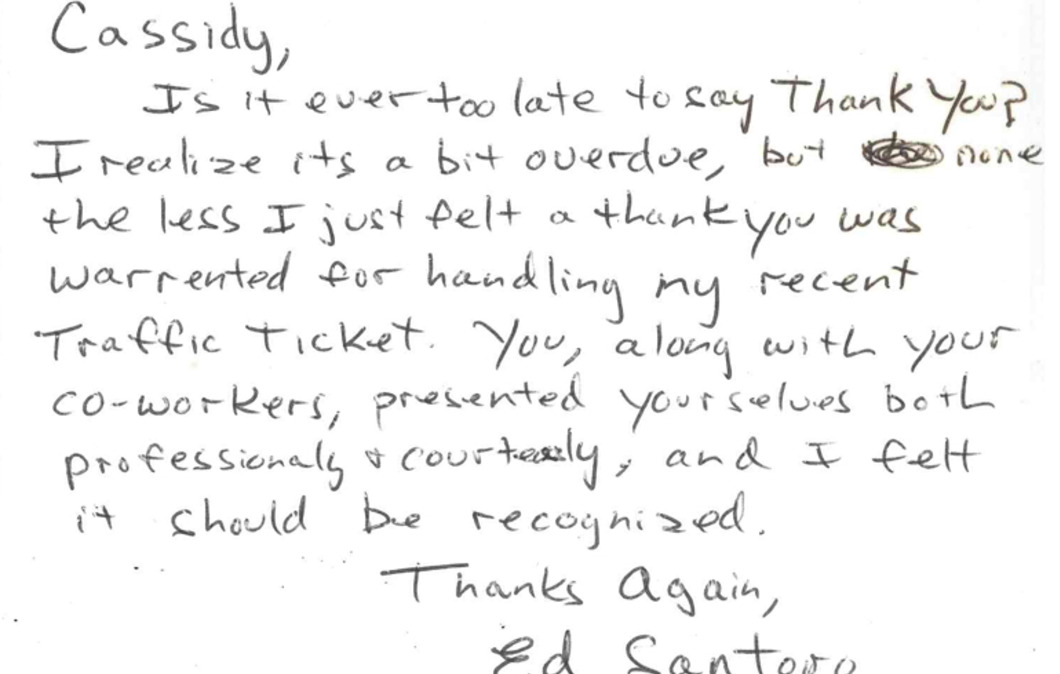 Cassidy,
Is it ever too late to say Thank You?
I realize its a bit overdue, but none
the less I just felt a thank you was
warrented for handling my recent
Traffic Ticket. You, along with your
co-workers, presented yourselves both
professionaly & , and I felt
it should be recognized.
Thanks Again,
Ed Santoro